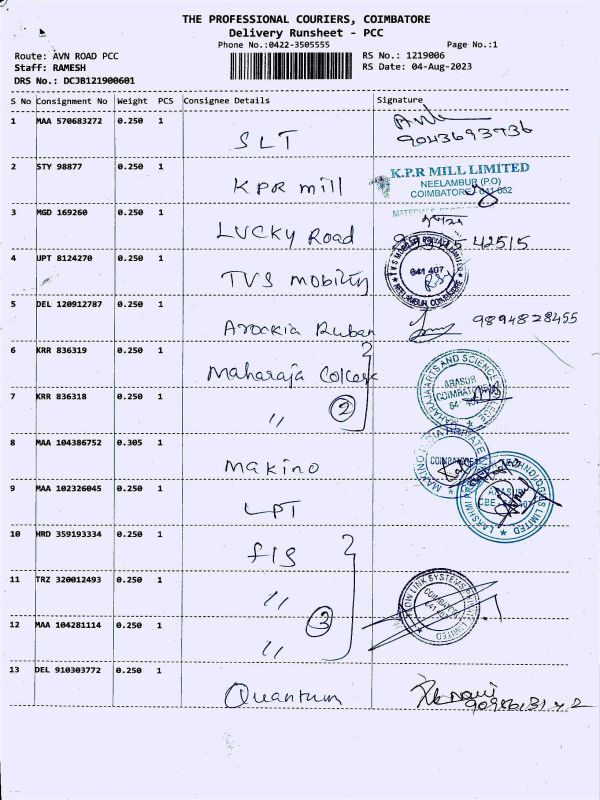 THE PROFESSIONAL COURIERS, COIMBATORE
Delivery Runsheet - PCC
Phone No.:0422-3505555
Page No.:1
Route: AVN ROAD PCC
RS No.: 1219006
Staff: RAMESH
RS Date: 04-Aug-2023
DRS No.: DCJB121900601
S No Consignment No Weight PCS Consignee Details Signature
1 MAA 570683272 0.250 1
SLT
2 STY 98877 0.250 1
KPR mill
K.P.R MILL LIMITED
NEELAMBUR (P.O)
COIMBATORE - 641 062
3 MGD 169260 0.250 1
LUCKY Road
42515
4 UPT 8124270 0.250 1
TVS mobility
641 407
NEELAMBUR, COIMBATORE
5 DEL 120912787 0.250 1
Arockia Ruban 9894828455
6 KRR 836319 0.250 1
Maharaja College
MAHARAJA ARTS AND SCIENCE COLLEGE
ARASUR
COIMBATORE
7 KRR 836318 0.250 1
" 2
8 MAA 104386752 0.305 1
makino
MAKINO INDIA PRIVATE
COIMBATORE
9 MAA 102326045 0.250 1
LPT
TECHNOLOGIES LIMITED
10 HRD 359193334 0.250 1
FLS
11 TRZ 320012493 0.250 1
"
12 MAA 104281114 0.250 1
" 3
LINK SYSTEMS PRIVATE LIMITED
COIMBATORE
13 DEL 910303772 0.250 1
Quantum